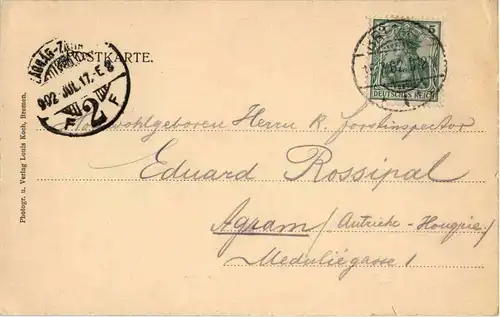 POSTKARTE.
ZÁGRÁB-ZAGREB
902. JUL. 17.-E 8
F 2 F
5
DEUTSCHES REICH
Hochwohlgeboren Herrn K. Forstinspector
Eduard Rossipal
Agram / Autriche-Hongrie /
Meduličgasse 1
Photogr. u. Verlag Louis Koch, Bremen.